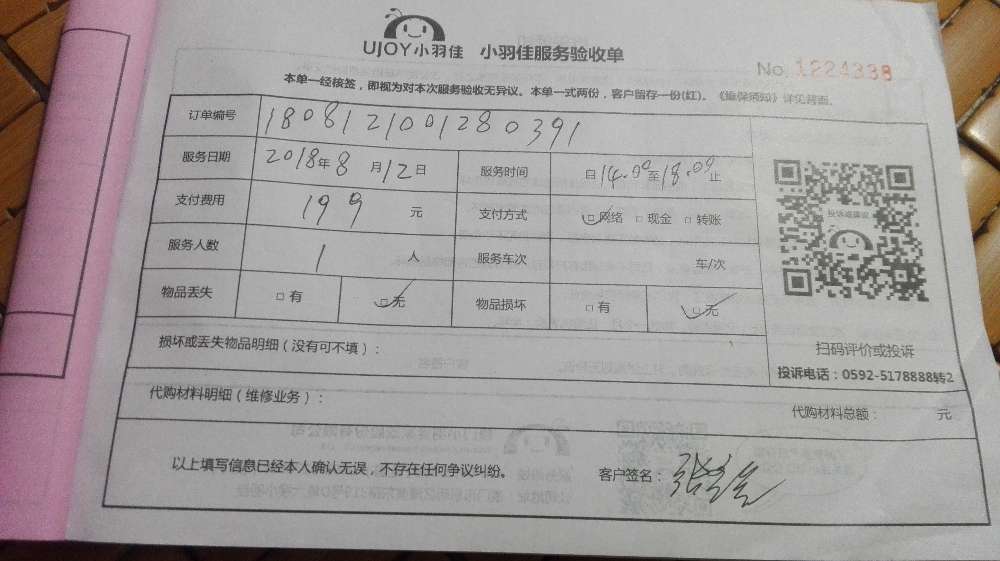 UJOY小羽佳 小羽佳服务验收单
No. 1224338
本单一经核签，即视为对本次服务验收无异议。本单一式两份，客户留存一份(红)。《重保须知》详见背面。
订单编号 180812100128 0391
服务日期 2018年8月12日 服务时间 自14.00至18.00止
支付费用 199 元 支付方式 □网络 □现金 □转账
服务人数 1 人 服务车次 车/次
物品丢失 □有 □无 物品损坏 □有 □无
投诉或建议
扫码评价或投诉
投诉电话：0592-5178888转2
损坏或丢失物品明细（没有可不填）：
代购材料明细（维修业务）： 代购材料总额： 元
以上填写信息已经本人确认无误，不存在任何争议纠纷。 客户签名：